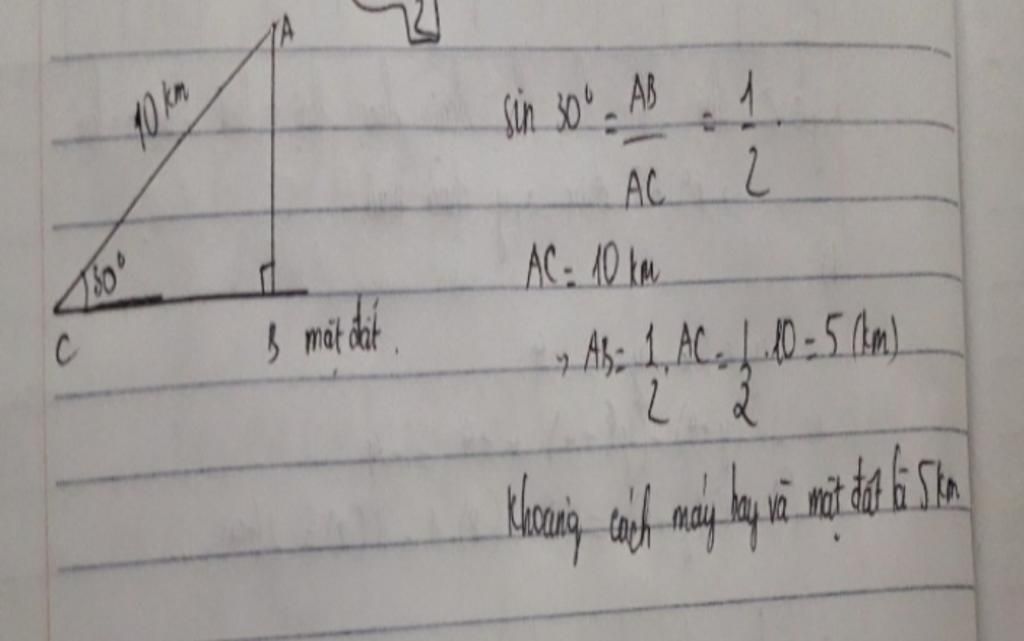 A
10 km
30°
C
B mặt đất.
sin 30° = AB/AC = 1/2.
AC = 10 km
→ AB = 1/2 . AC = 1/2 . 10 = 5 (km)
Khoảng cách máy bay và mặt đất là 5 km